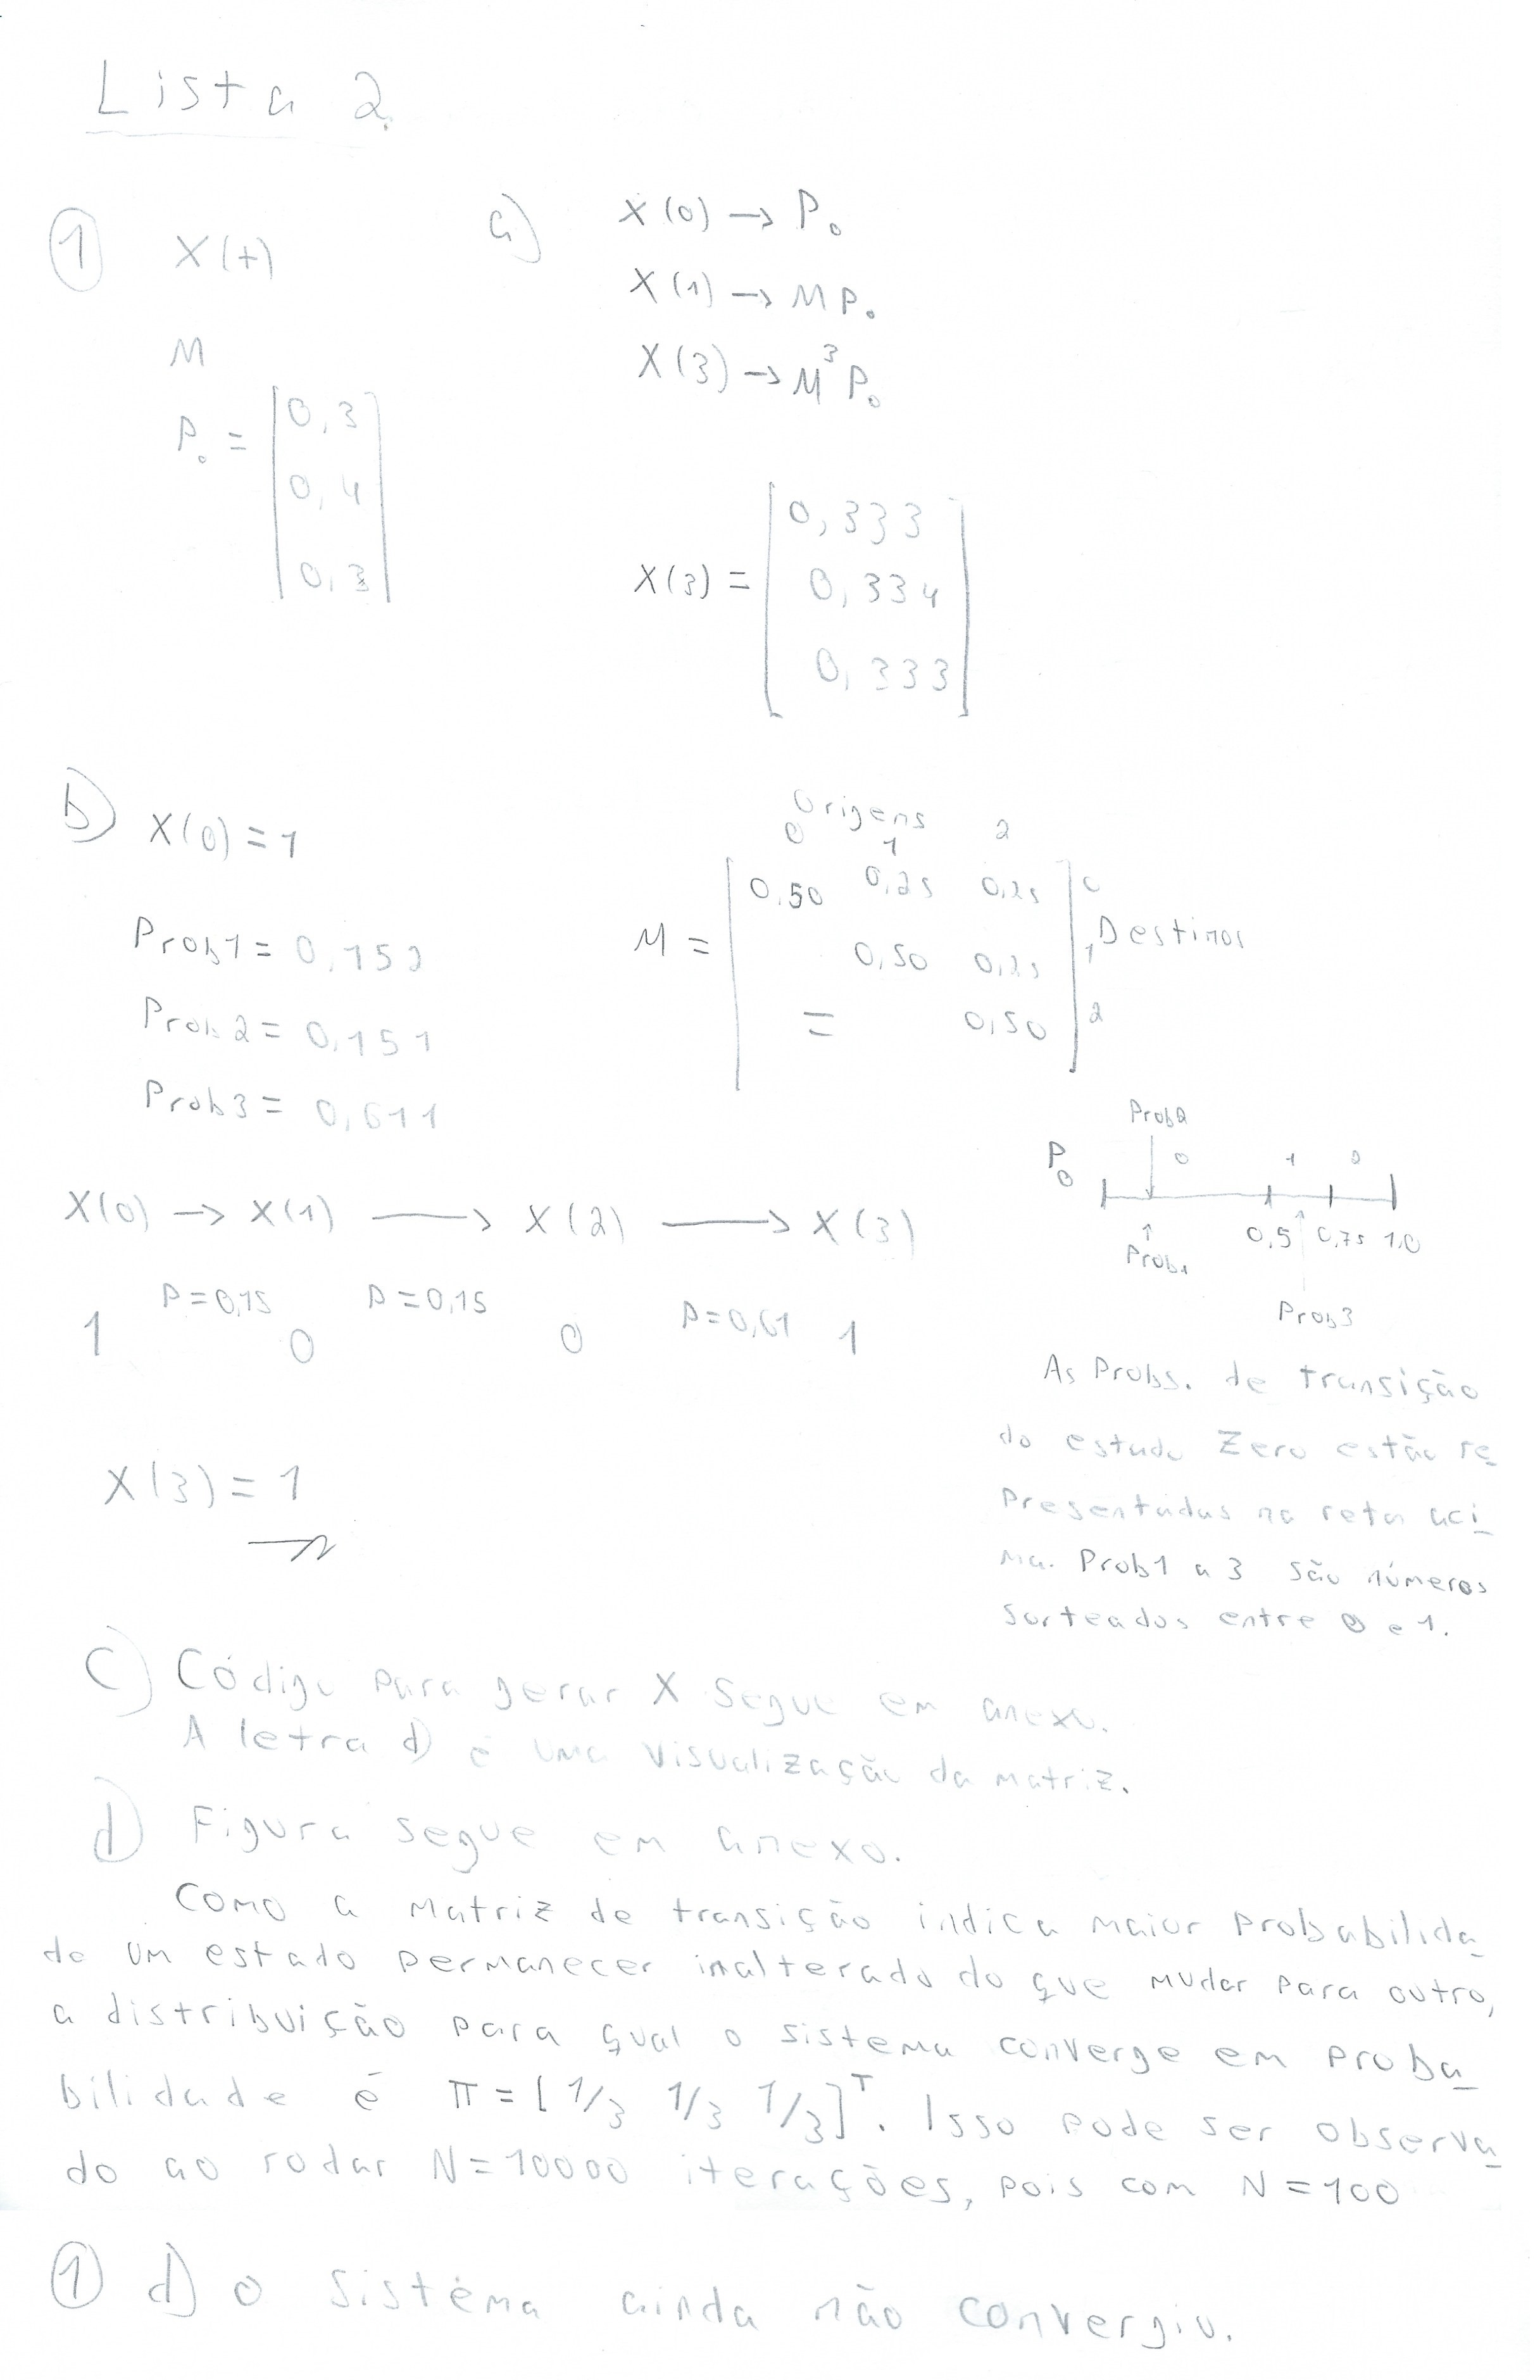 Lista 2.
① X(t)
M
P₀ = [0,3
0,4
0,3]
a) X(0) → P₀
X(1) → MP₀
X(3) → M³P₀
X(3) = [0,333
0,334
0,333]
b) X(0) = 1
Prob1 = 0,152
Prob2 = 0,151
Prob3 = 0,611
Origens
0 1 2
M = [0,50 0,25 0,25] 0
0,50 0,25 1 Destinos
= 0,50 2
Prob2
P₀ 0 1 2
0,5 0,75 1,0
Prob1
Prob3
X(0) → X(1) → X(2) → X(3)
P=0,15 P=0,15 P=0,61
1 0 0 1
X(3) = 1
As Probs. de transição
do estado Zero estão re
presentadas na reta aci
ma. Prob1 a 3 são números
sorteados entre 0 e 1.
C) Código para gerar X segue em anexo.
A letra d) é uma visualização da matriz.
d) Figura segue em anexo.
Como a matriz de transição indica maior probabilida
de um estado permanecer inalterado do que mudar para outro,
a distribuição para qual o sistema converge em proba
bilidade é π = [1/3 1/3 1/3]ᵀ. Isso pode ser observa
do ao rodar N=10000 iterações, pois com N=100
① d) o sistema ainda não convergiu.